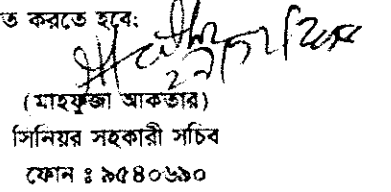 ত করতে হবে:
(মাহফুজা আকতার)
সিনিয়র সহকারী সচিব
ফোন : ৯৫৪০৬৯০